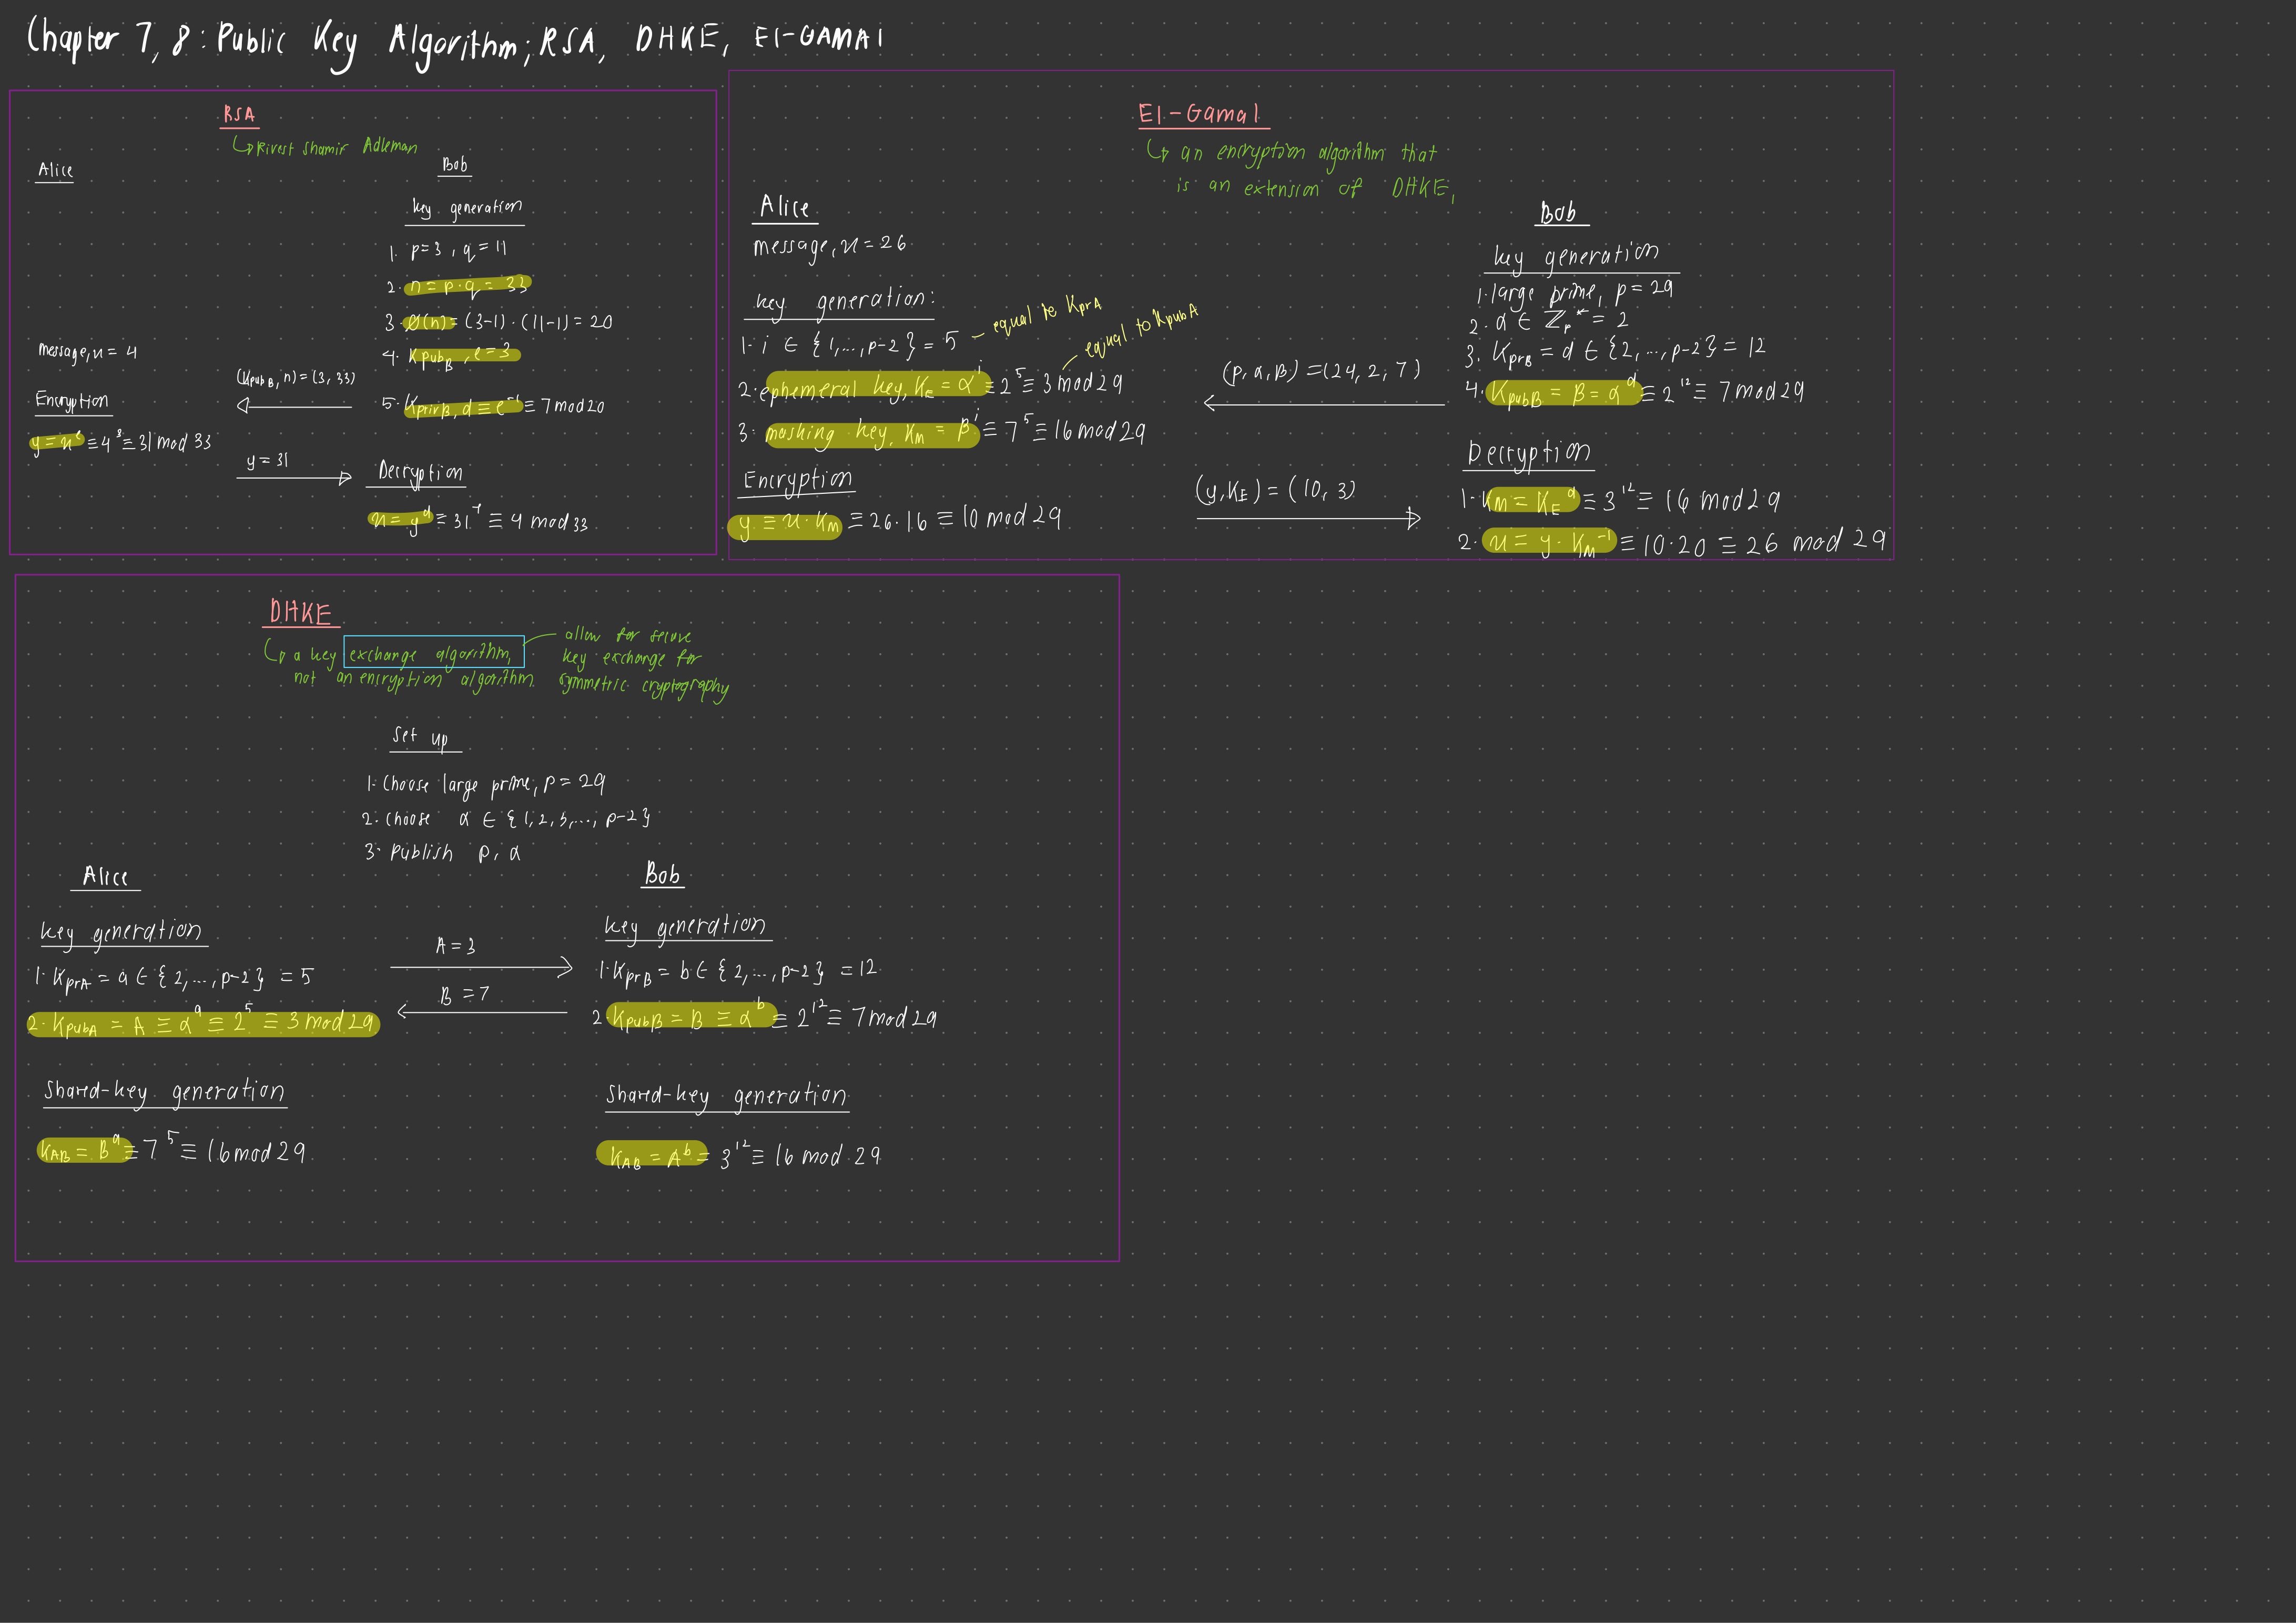 Chapter 7, 8: Public Key Algorithm; RSA, DHKE, El-GAMAl
RSA
↳ Rivest Shamir Adleman
Alice
Bob
key generation
1. p=3, q=11
2. n=p·q=33
3. Ø(n)=(3-1)·(11-1)=20
message, x=4
4. KpubB, e=3
(KpubB, n)=(3, 33)
Encryption
5. KprivB, d≡e⁻¹≡7 mod 20
y=xᵉ≡4³≡31 mod 33
y=31
Decryption
x=yᵈ≡31⁷≡4 mod 33
El-Gamal
↳ an encryption algorithm that
is an extension of DHKE,
Alice
message, x=26
key generation:
1. i ∈ {1,...,p-2} = 5
equal to KprA
2. ephemeral key, KE = αⁱ≡2⁵≡3 mod 29
equal to KpubA
3. masking key, KM = βⁱ≡7⁵≡16 mod 29
Encryption
y≡x·KM≡26·16≡10 mod 29
(p, α, β)=(29, 2, 7)
(y, KE)=(10, 3)
Bob
key generation
1. large prime, p=29
2. α ∈ Zp*=2
3. KprB = d ∈ {2,...,p-2}=12
4. KpubB = β = αᵈ≡2¹²≡7 mod 29
Decryption
1. KM=KEᵈ≡3¹²≡16 mod 29
2. x=y·KM⁻¹≡10·20≡26 mod 29
DHKE
↳ a key exchange algorithm,
not an encryption algorithm.
allow for secure
key exchange for
symmetric cryptography
Set up
1. Choose large prime, p=29
2. choose α ∈ {1,2,3,...,p-2}
3. Publish p, α
Alice
key generation
1. KprA = a ∈ {2,...,p-2} = 5
2. KpubA = A ≡ αᵃ≡2⁵≡3 mod 29
A=3
B=7
Bob
key generation
1. KprB = b ∈ {2,...,p-2} = 12
2. KpubB = B ≡ αᵇ≡2¹²≡7 mod 29
Shared-key generation
KAB = Bᵃ≡7⁵≡16 mod 29
Shared-key generation
KAB = Aᵇ=3¹²≡16 mod 29